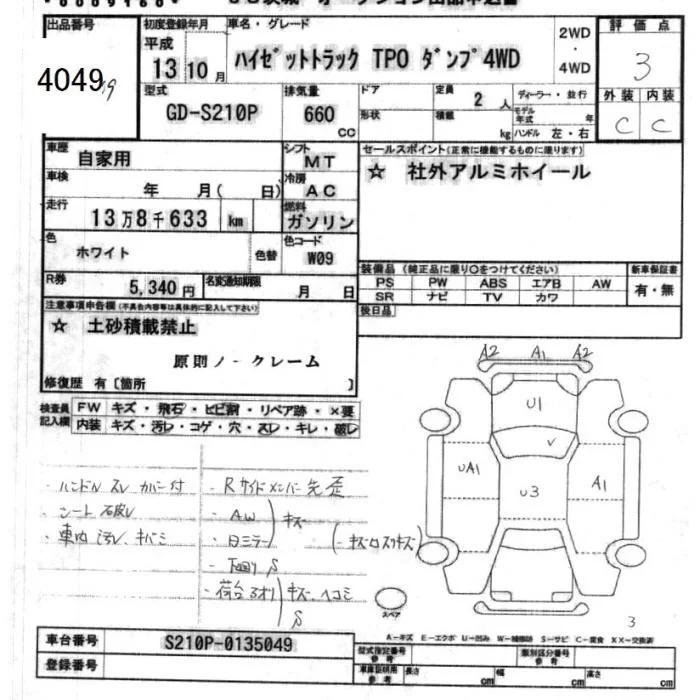 出品番号
初度登録年月
車名・グレード
評価点
平成
13 10月
ハイゼットトラック TPO ダンプ4WD
2WD
・
4WD
3
4049
型式
排気量
ドア
定員
2人
ディーラー・並行
外装 内装
GD-S210P
660
CC
形状
積載
kg
モデル年式 年
ハンドル 左・右
C C
車歴
自家用
シフト
MT
セールスポイント(正常に機能するものに限ります)
☆ 社外アルミホイール
車検
年 月( 日)
冷房
AC
走行
13万8千633 km
燃料
ガソリン
色
ホワイト
色替
色コード
W09
装備品 (純正品に限り○をつけてください)
新車保証書
PS PW ABS エアB AW
SR ナビ TV カワ
有・無
R券
5,340円
名変通知期限
月 日
後日品
注意事項申告欄(不具合内容等は具体的に記入して下さい)
☆ 土砂積載禁止
原則ノークレーム
修復歴 有〔箇所 〕
検査員
記入欄
FW キズ・飛石・ヒビ割・リペア跡・×要
内装 キズ・汚レ・コゲ・穴・スレ・キレ・破レ
A2 A1 A2
U1
UA1
U3
A1
ハンドル スレ カバー付
シート 破レ
車内 汚レ、キバミ
Rサイドメンバー先歪
AW
日ミラー
キズ
下回り S
荷台アオリ
キズ、ヘコミ
S
スペア
3
A-キズ E-エクボ U-凹み W-補修跡 S-サビ C-腐食 XX-交換済
車台番号
S210P-0135049
登録番号
型式指定番号
参考
類別区分番号
参考
車庫証明用
参考
長さ cm
幅 cm
高さ cm